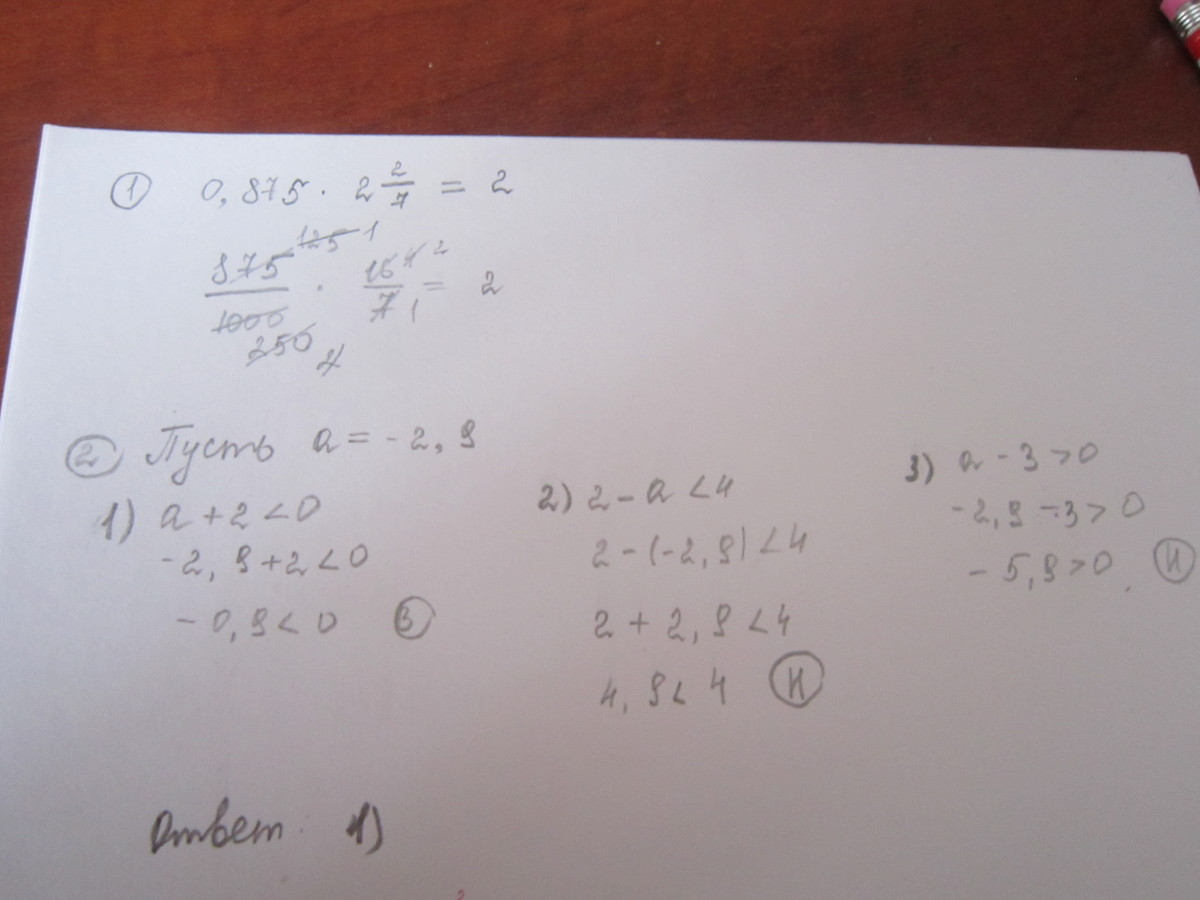 ① 0,875 · 2 2/7 = 2
875/1000 · 16/7 = 2
125 1
4 2
1
250 4
② Пусть a = -2,9
1) a + 2 < 0
-2,9 + 2 < 0
-0,9 < 0 Ⓑ
2) 2 - a < 4
2 - (-2,9) < 4
2 + 2,9 < 4
4,9 < 4 Ⓗ
3) a - 3 > 0
-2,9 - 3 > 0
-5,9 > 0 Ⓗ
Ответ. 1)